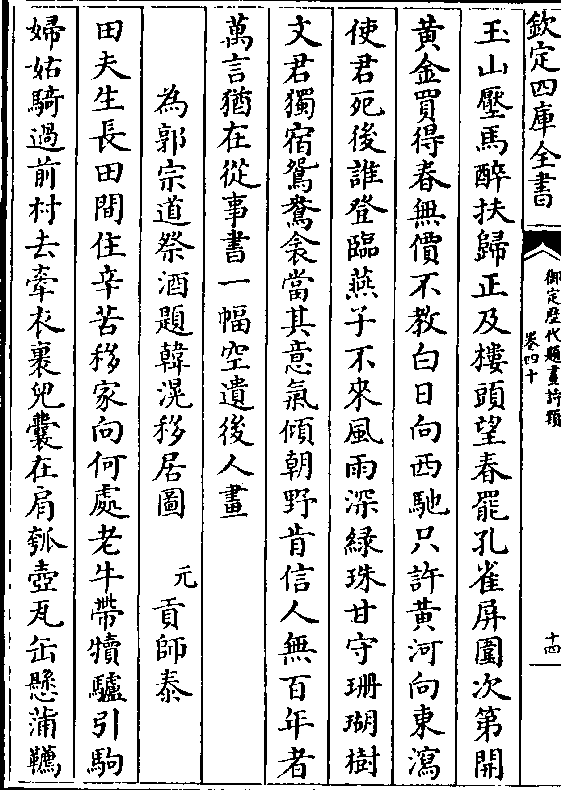 欽定四庫全書
御定歷代題畫詩類
卷四十
十四
玉山壓馬醉扶歸正及樓頭望春罷孔雀屏圍次第開
黃金買得春無價不教白日向西馳只許黃河向東瀉
使君死後誰登臨燕子不來風雨深綠珠甘守珊瑚樹
文君獨宿鴛鴦衾當其意氣傾朝野肯信人無百年者
萬言猶在從事書一幅空遺後人畫
為郭宗道祭酒題韓滉移居圖 元 貢師泰
田夫生長田間住辛苦移家向何處老牛帶犢驢引駒
婦姑騎過前村去牽衣裹兒囊在肩瓠壺瓦缶懸蒲韉